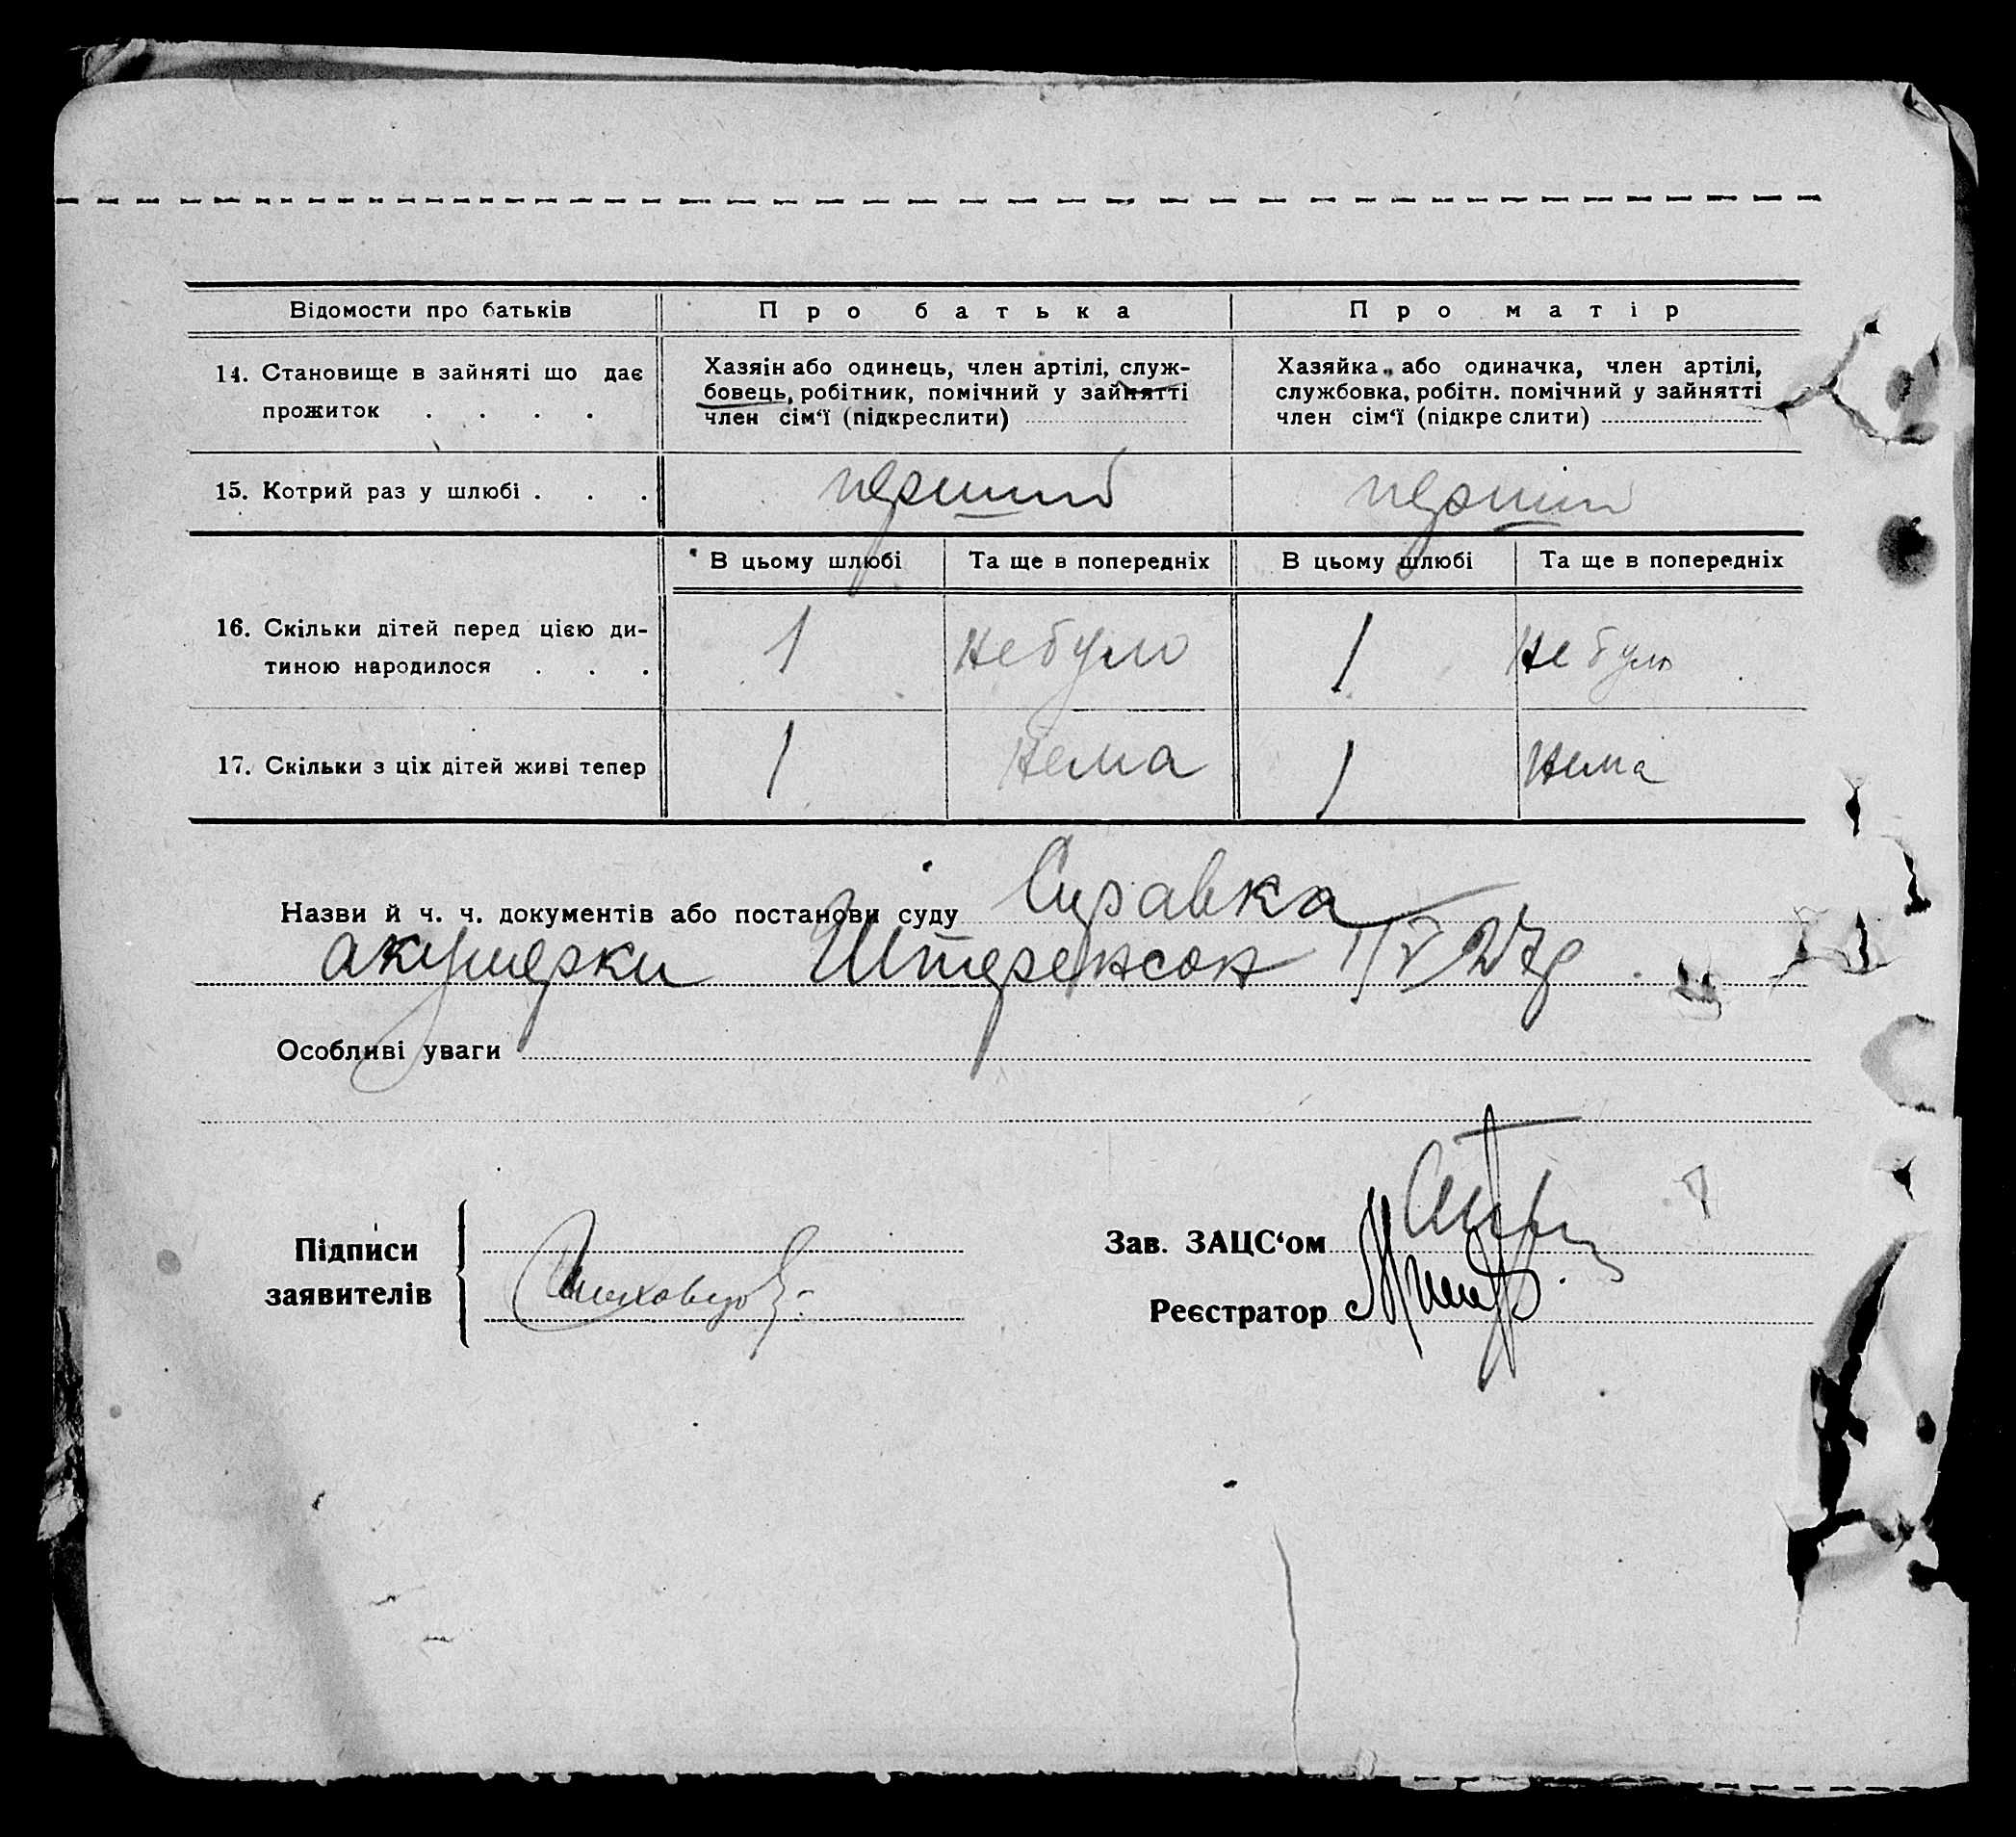 Відомости про батьків Про батька Про матір
14. Становище в зайняті що дає Хазяін або одинець, член артілі, служ- Хазяйка або одиначка, член артілі,
прожиток . . . . бовець, робітник, помічний у зайнятті службовка, робітн. помічний у зайнятті
член сім‘ї (підкреслити) член сім‘ї (підкреслити)
15. Котрий раз у шлюбі . . . перший перший
В цьому шлюбі Та ще в попередніх В цьому шлюбі Та ще в попередніх
16. Скільки дітей перед цією ди-
тиною народилося . . . 1 не було 1 не було
17. Скільки з ціх дітей живі тепер 1 нема 1 нема
Назви й ч. ч. документів або постанови суду Справка
акушерки Штеренсон 1/V 27р
Особливі уваги
Підписи
заявителів
Зав. ЗАЦС‘ом
Реєстратор